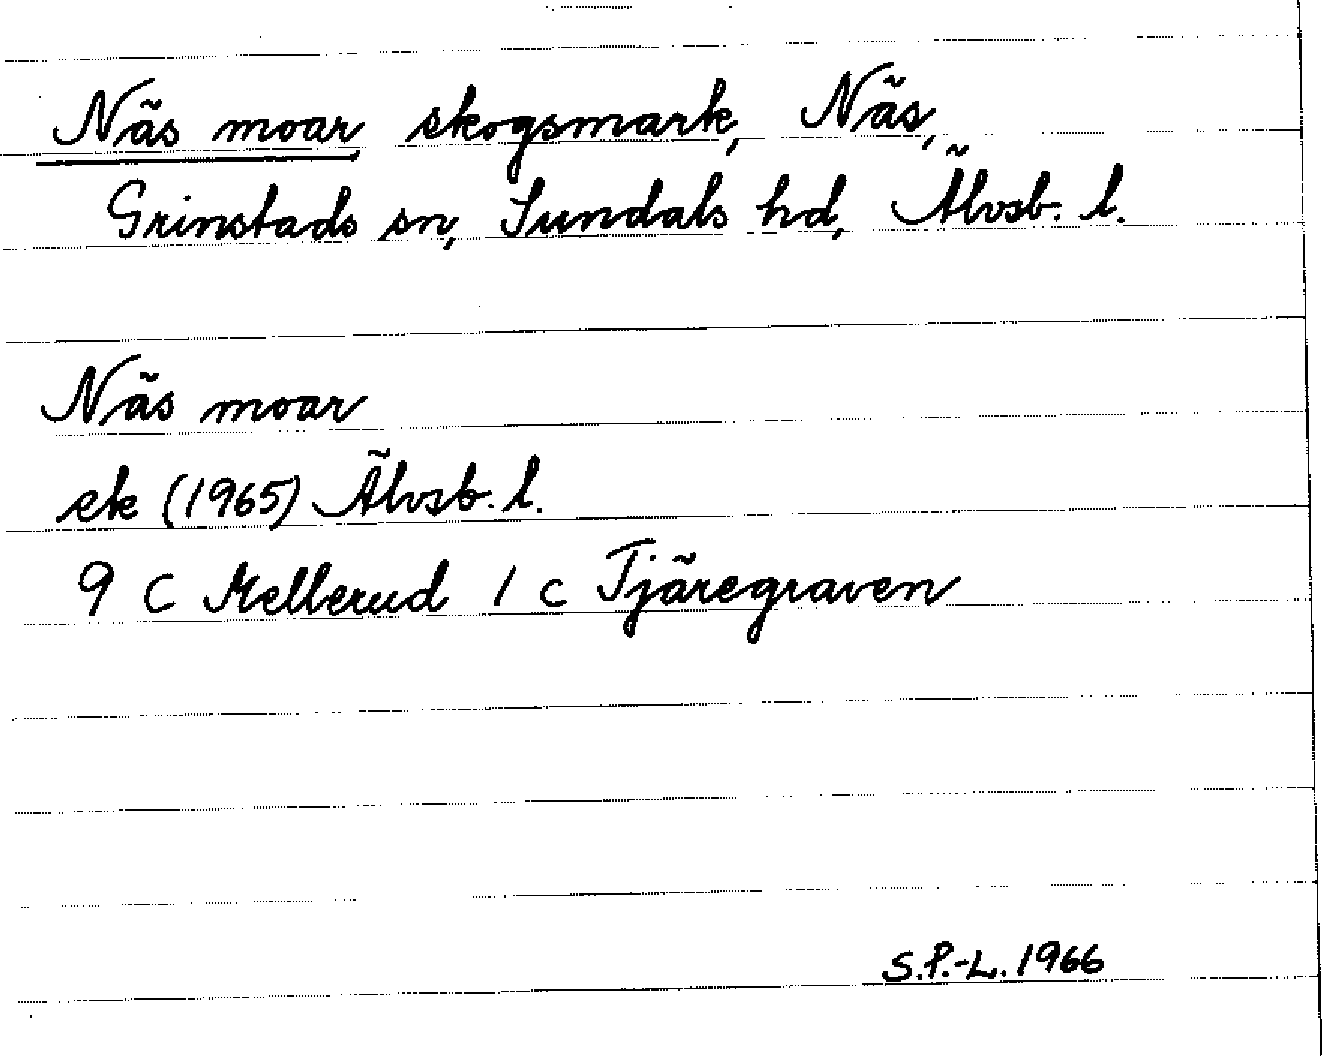 Näs moar, skogsmark, Näs,
Grinstads sn, Sundals hd, Älvsb. l.
Näs moar
ek (1965) Älvsb. l.
9 C Mellerud 1 c Tjäregraven
S.P.-L. 1966